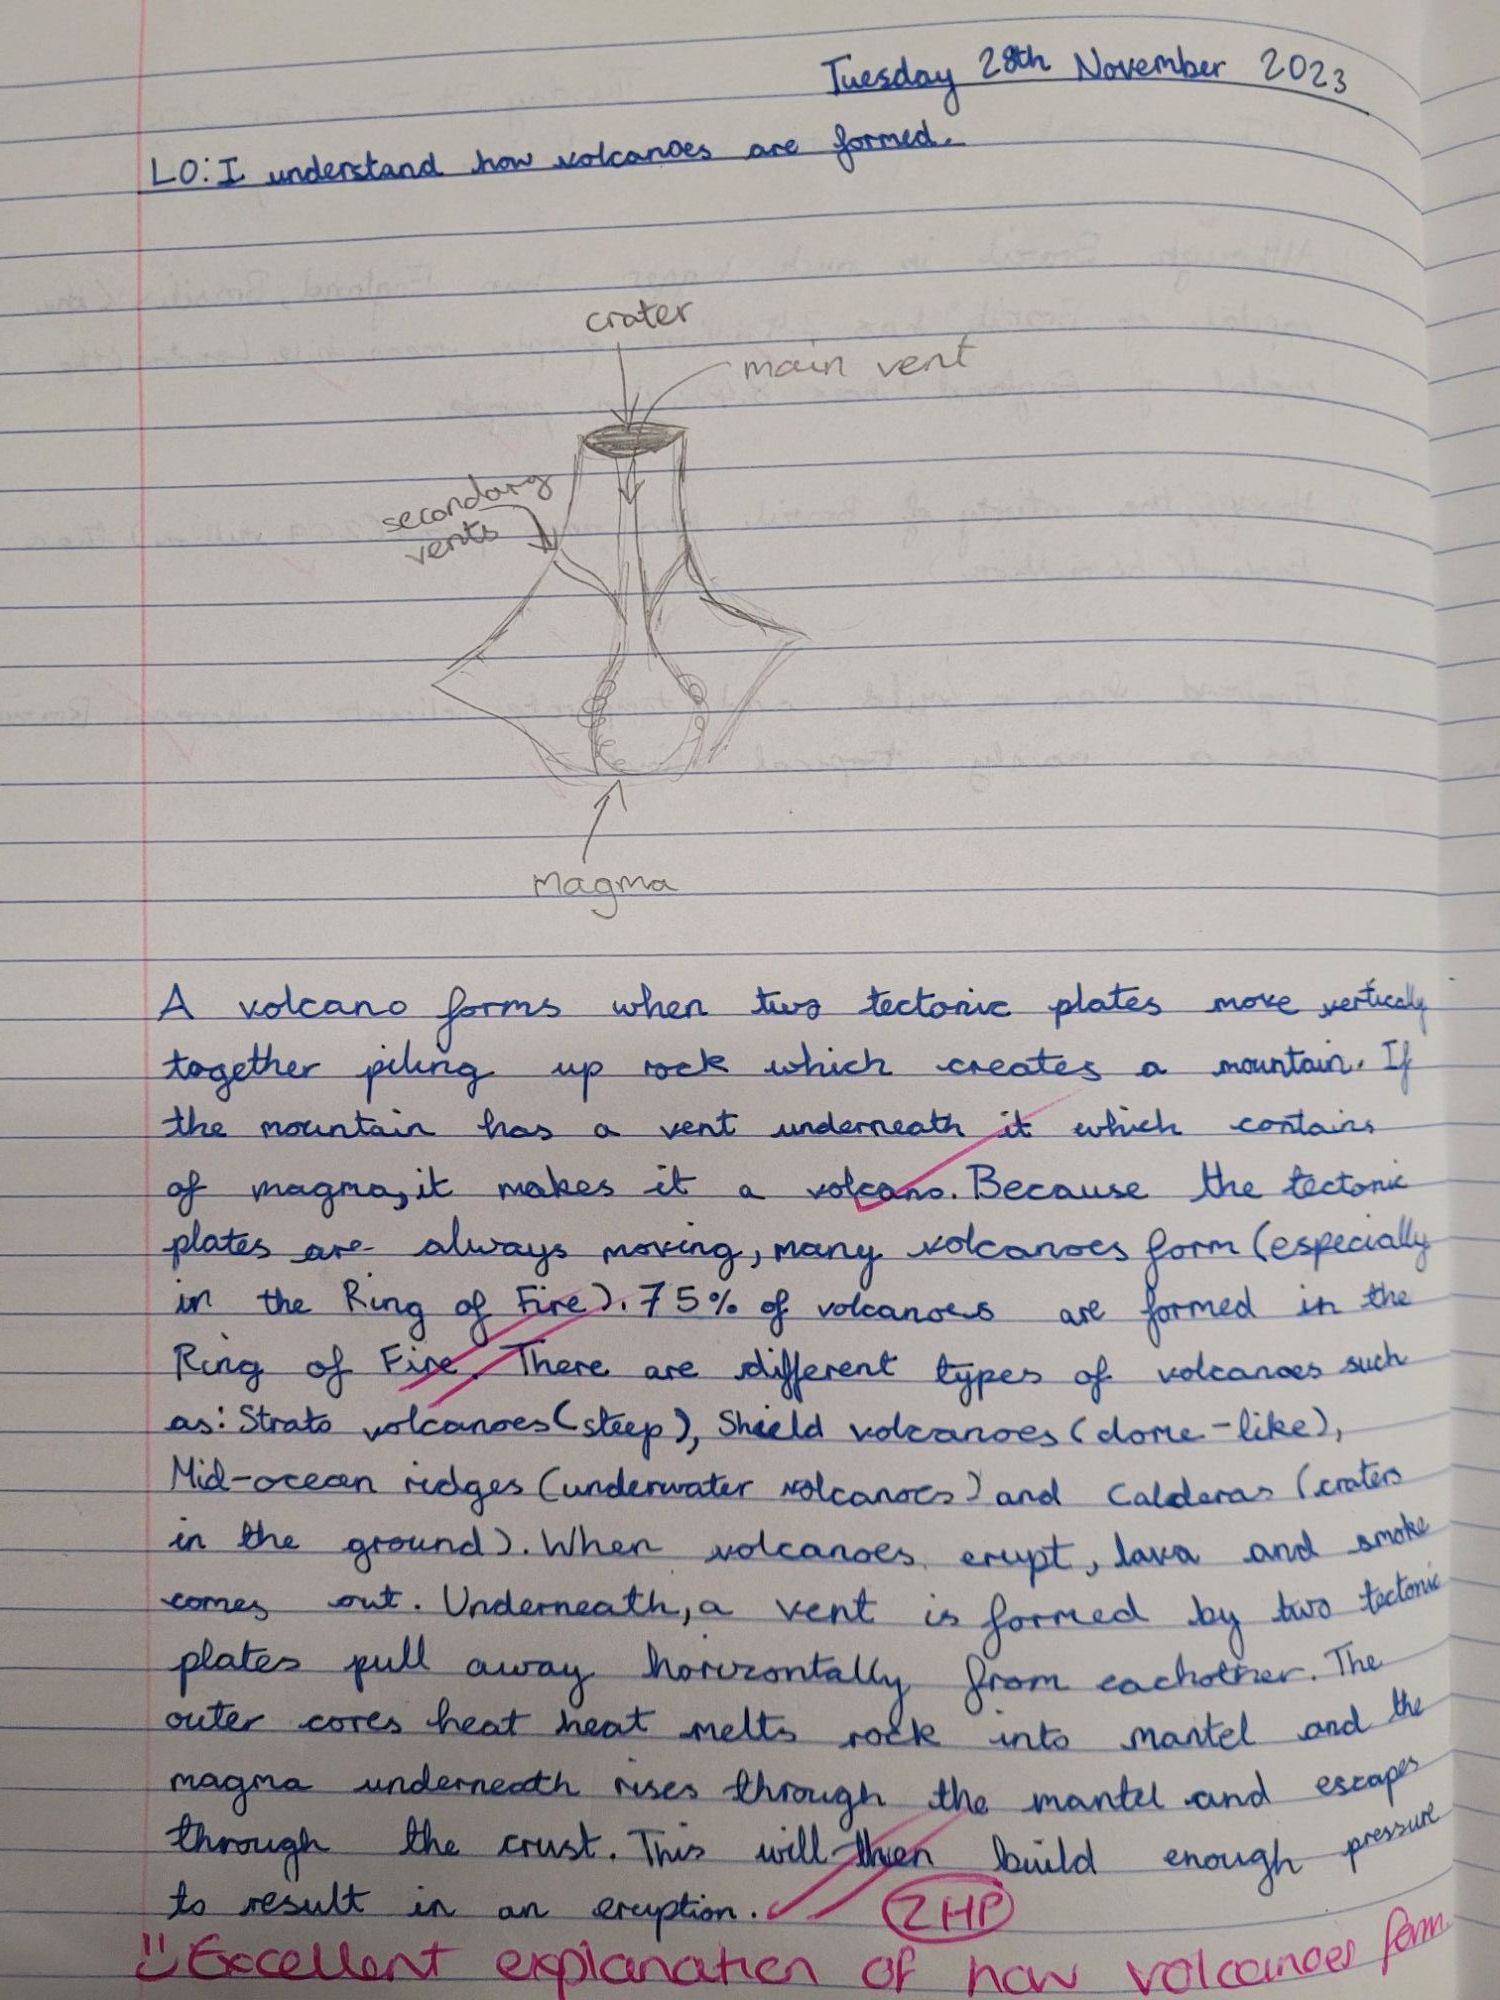 Tuesday 28th November 2023
LO: I understand how volcanoes are formed.
crater
main vent
secondary
vents
Magma
A volcano forms when two tectonic plates move verticaly
together piling up rock which creates a mountain. If
the mountain has a vent underneath it which contains
of magma, it makes it a volcano. Because the tectonic
plates are always moving, many volcanoes form (especially
in the Ring of Fire). 75% of volcanoes are formed in the
Ring of Fire. There are different types of volcanoes such
as: Strato volcanoes (steep), Shield volcanoes (dome-like),
Mid-ocean ridges (underwater volcanoes) and Calderas (craters
in the ground). When volcanoes erupt, lava and smoke
comes out. Underneath, a vent is formed by two tectonic
plates pull away horizontally from eachother. The
outer cores heat heat melts rock into mantel and the
magma underneath rises through the mantel and escapes
through the crust. This will then build enough pressure
to result in an eruption. 2HP
Excellent explanation of how volcanoes form